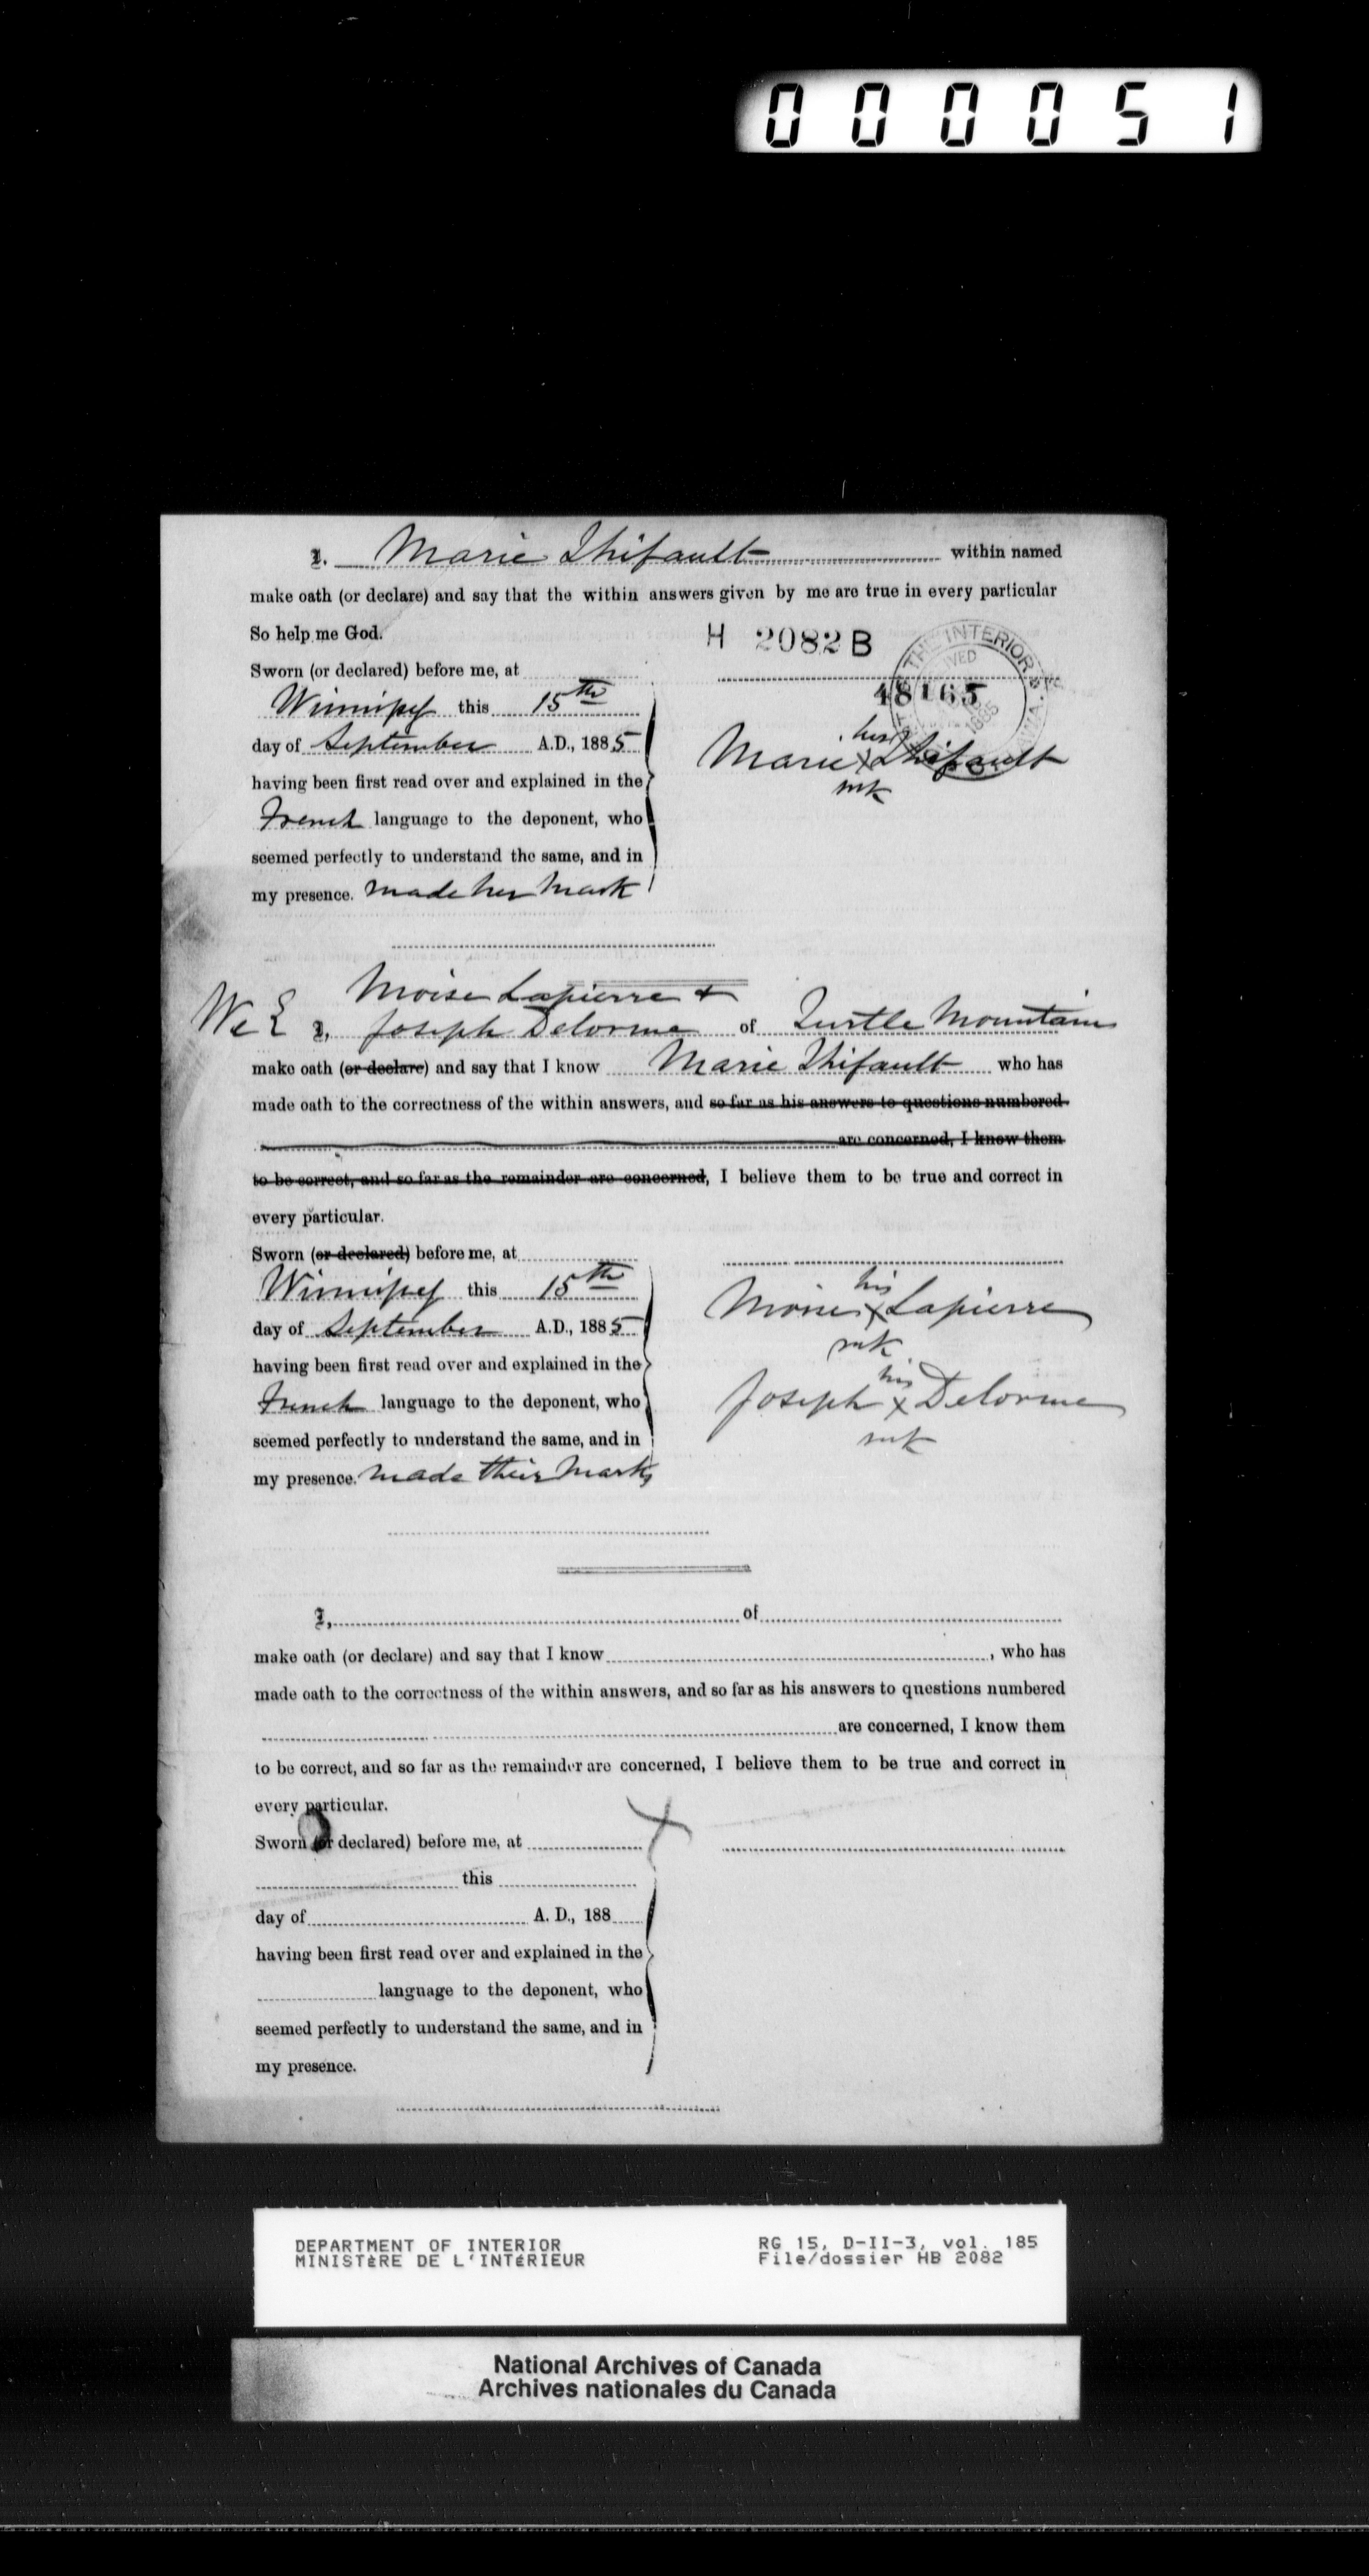 000051
I, Marie Thifault within named
make oath (or declare) and say that the within answers given by me are true in every particular
So help me God.
H 2082 B
THE INTERIOR
Sworn (or declared) before me, at
48165
1885
Winnipeg this 15th
day of September A.D., 1885
her
Marie X Thifault
mk
having been first read over and explained in the
French language to the deponent, who
seemed perfectly to understand the same, and in
my presence. made her mark
Moise Lapierre &
We I, Joseph Delorme of Turtle Mountain
make oath (or declare) and say that I know Marie Thifault who has
made oath to the correctness of the within answers, and so far as his answers to questions numbered
are concerned, I know them
to be correct, and so far as the remainder are concerned, I believe them to be true and correct in
every particular.
Sworn (or declared) before me, at
Winnipeg this 15th
day of September A.D., 1885
his
Moise X Lapierre
mk
having been first read over and explained in the
his
French language to the deponent, who
Joseph X Delorme
mk
seemed perfectly to understand the same, and in
my presence. made their marks
I, of
make oath (or declare) and say that I know , who has
made oath to the correctness of the within answers, and so far as his answers to questions numbered
are concerned, I know them
to be correct, and so far as the remainder are concerned, I believe them to be true and correct in
every particular.
Sworn (or declared) before me, at
this
day of A. D., 188
having been first read over and explained in the
language to the deponent, who
seemed perfectly to understand the same, and in
my presence.
DEPARTMENT OF INTERIOR
MINISTÈRE DE L'INTÉRIEUR
RG 15, D-II-3, vol. 185
File/dossier HB 2082
National Archives of Canada
Archives nationales du Canada